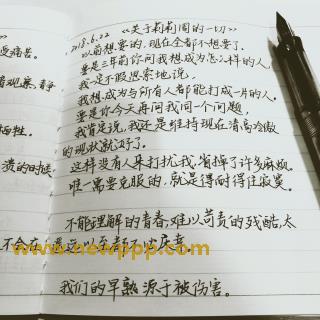 受痛苦。
着观察,静
牺牲。
贵的时候.
不会在
2018.6.22 《关于莉莉周的一切》
以前想要的,现在全都不想要了.
要是三年前你问我想成为怎样的人,
我一定不假思索地说,
我想成为与所有人都能打成一片的人.
要是你今天再问我同一个问题,
我肯定说,我还是维持现在清高冷傲
的现状就好了.
这样没有人来打扰我,省掉了许多麻烦.
唯一需要克服的,就是得耐得住寂寞.
不能理解的青春,难以苛责的残酷,太
www.newppp.com
我们的早熟 源于被伤害。